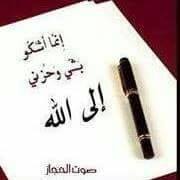 إنما أشكو
بثي وحزني
إلى الله
صوت الحجاز